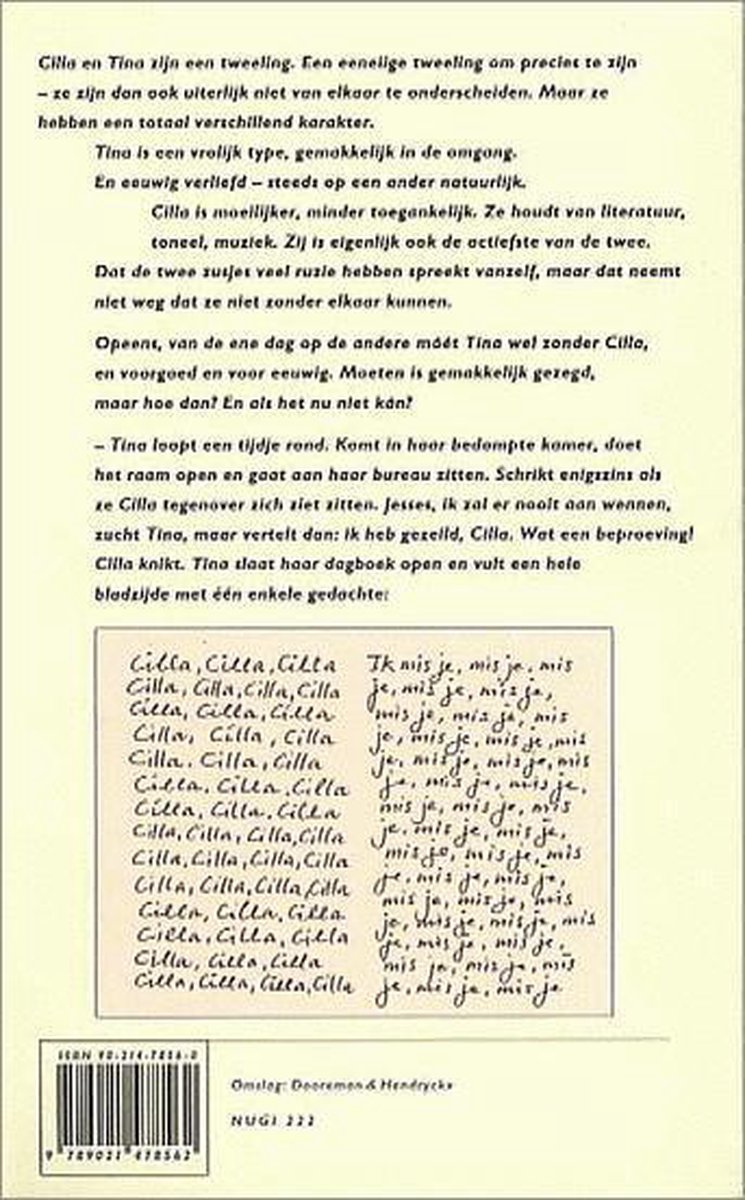 Cilla en Tina zijn een tweeling. Een eeneiige tweeling om precies te zijn
– ze zijn dan ook uiterlijk niet van elkaar te onderscheiden. Maar ze
hebben een totaal verschillend karakter.
Tina is een vrolijk type, gemakkelijk in de omgang.
En eeuwig verliefd – steeds op een ander natuurlijk.
Cilla is moeilijker, minder toegankelijk. Ze houdt van literatuur,
toneel, muziek. Zij is eigenlijk ook de actiefste van de twee.
Dat de twee zusjes veel ruzie hebben spreekt vanzelf, maar dat neemt
niet weg dat ze niet zonder elkaar kunnen.
Opeens, van de ene dag op de andere móét Tina wel zonder Cilla,
en voorgoed en voor eeuwig. Moeten is gemakkelijk gezegd,
maar hoe dan? En als het nu niet kán?
– Tina loopt een tijdje rond. Komt in haar bedompte kamer, doet
het raam open en gaat aan haar bureau zitten. Schrikt enigszins als
ze Cilla tegenover zich ziet zitten. Jesses, ik zal er nooit aan wennen,
zucht Tina, maar vertelt dan: ik heb gezeild, Cilla. Wat een beproeving!
Cilla knikt. Tina slaat haar dagboek open en vult een hele
bladzijde met één enkele gedachte:
Cilla, Cilla, Cilla
Cilla, Cilla, Cilla, Cilla
Cilla, Cilla, Cilla
Cilla, Cilla, Cilla
Cilla, Cilla, Cilla
Cilla, Cilla, Cilla
Cilla, Cilla, Cilla
Cilla, Cilla, Cilla, Cilla
Cilla, Cilla, Cilla, Cilla
Cilla, Cilla, Cilla, Cilla
Cilla, Cilla, Cilla
Cilla, Cilla, Cilla
Cilla, Cilla, Cilla
Cilla, Cilla, Cilla, Cilla
Ik mis je, mis je, mis
je, mis je, mis je,
mis je, mis je, mis
je, mis je, mis je, mis
je, mis je, mis je, mis
je, mis je, mis je,
mis je, mis je, mis
je, mis je, mis je,
mis je, mis je, mis
je, mis je, mis je,
mis je, mis je, mis
je, mis je, mis je, mis
je, mis je, mis je,
mis je, mis je, mis
je, mis je, mis je
ISBN 90-214-7856-0
9 789021 478562
Omslag: Dooreman & Hendryckx
NUGI 222